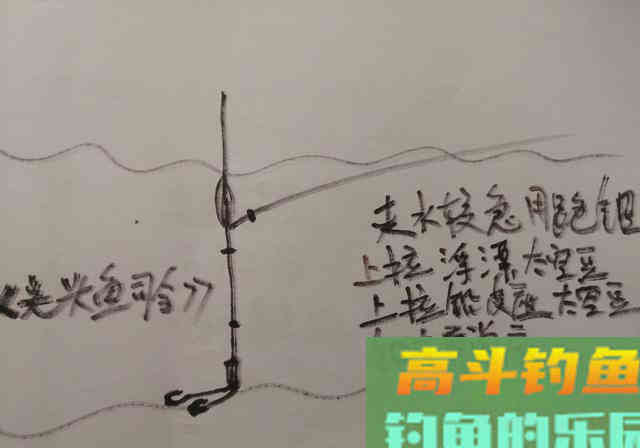 走水较急用跑铅
上拉浮漂太空豆
上拉铅皮座太空豆
《光头鱼司令》
高斗钓鱼
钓鱼的乐园